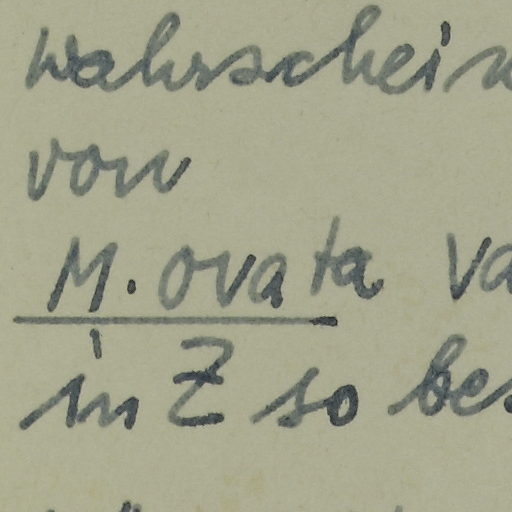 wahrschein
von
M. ovata va
in Z so bes